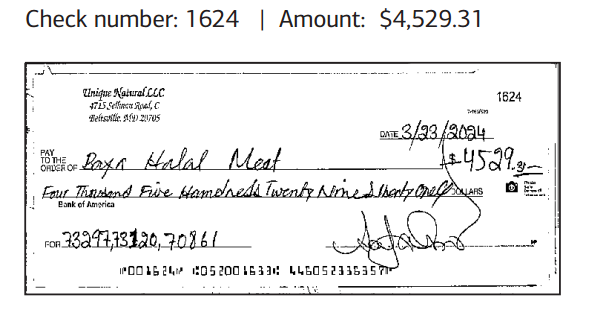 Check number: 1624 | Amount: $4,529.31
Unique Natural LLC
4715 Sellman Road, C
Beltsville, MD 20705
1624
DATE 3/23/2024
PAY TO THE ORDER OF Baya Halal Meat $4529.31
Four Thousand Five Hundreds Twenty Nine & thenty One DOLLARS
Bank of America
FOR 73297,73120,70861
⑈001624⑈ ⑆052001633⑆ 446052336357⑈